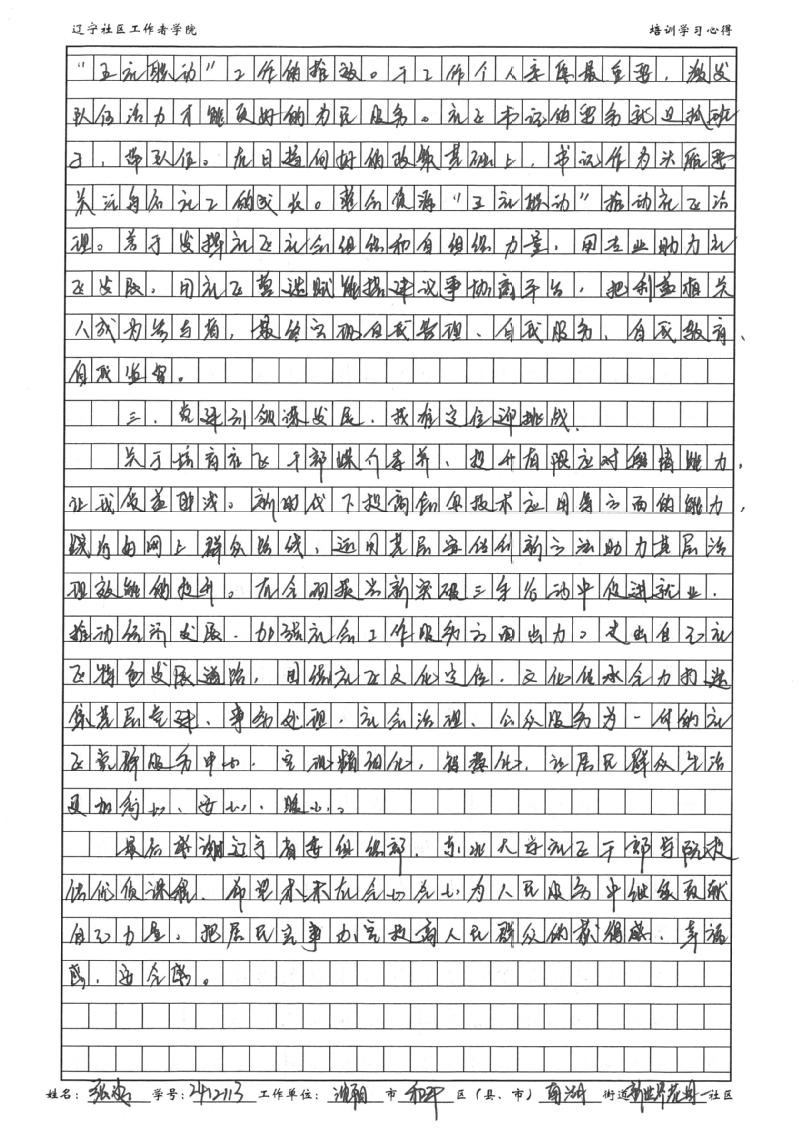 辽宁社区工作者学院 培训学习心得
“五社联动”工作的推效。于工作个人来作最重要，激发
队伍活力才能更好的为民服务。社区书记的要务就是抓班
子，带队伍。在日趋向好的政策基础上，书记作为头雁要
关注每名社工的成长。整合资源“五社联动”推动社区治
理。善于发挥社区社会组织和自组织力量，用专业助力社
区发展，用社区营造赋能搭建议事协商平台，把利益相关
人成为参与者，最终实现自我管理、自我服务、自我教育、
自我监督。
三、党建引领谋发展，找准定位迎挑战
关于培育社区干部媒介素养、提升有限应对舆情能力，
让我受益匪浅。新时代下提高信息技术应用等方面的能力，
践行好网上群众路线，运用基层宣传创新方法助力基层治
理效能的提升。在全面振兴新突破三年行动中促进就业，
推动经济发展，加强社会工作服务方面出力。走出自己社
区特色发展道路，用强社区文化定位，文化传承全力打造
集基层党建、事务处理、社会治理、公众服务为一体的社
区党群服务中心，实现精细化，智慧化，让居民群众生活
更加舒心、安心、暖心。
最后感谢辽宁省委组织部，东北大学社区干部学院提
供优质课程，希望未来在全心全意为人民服务中继续贡献
自己力量，把居民事办实提高人民群众的获得感、幸福
感、安全感。
姓名：张 学号：2412113 工作单位：沈阳 市 和平 区（县、市） 南湖 街道 新世界花园一 社区